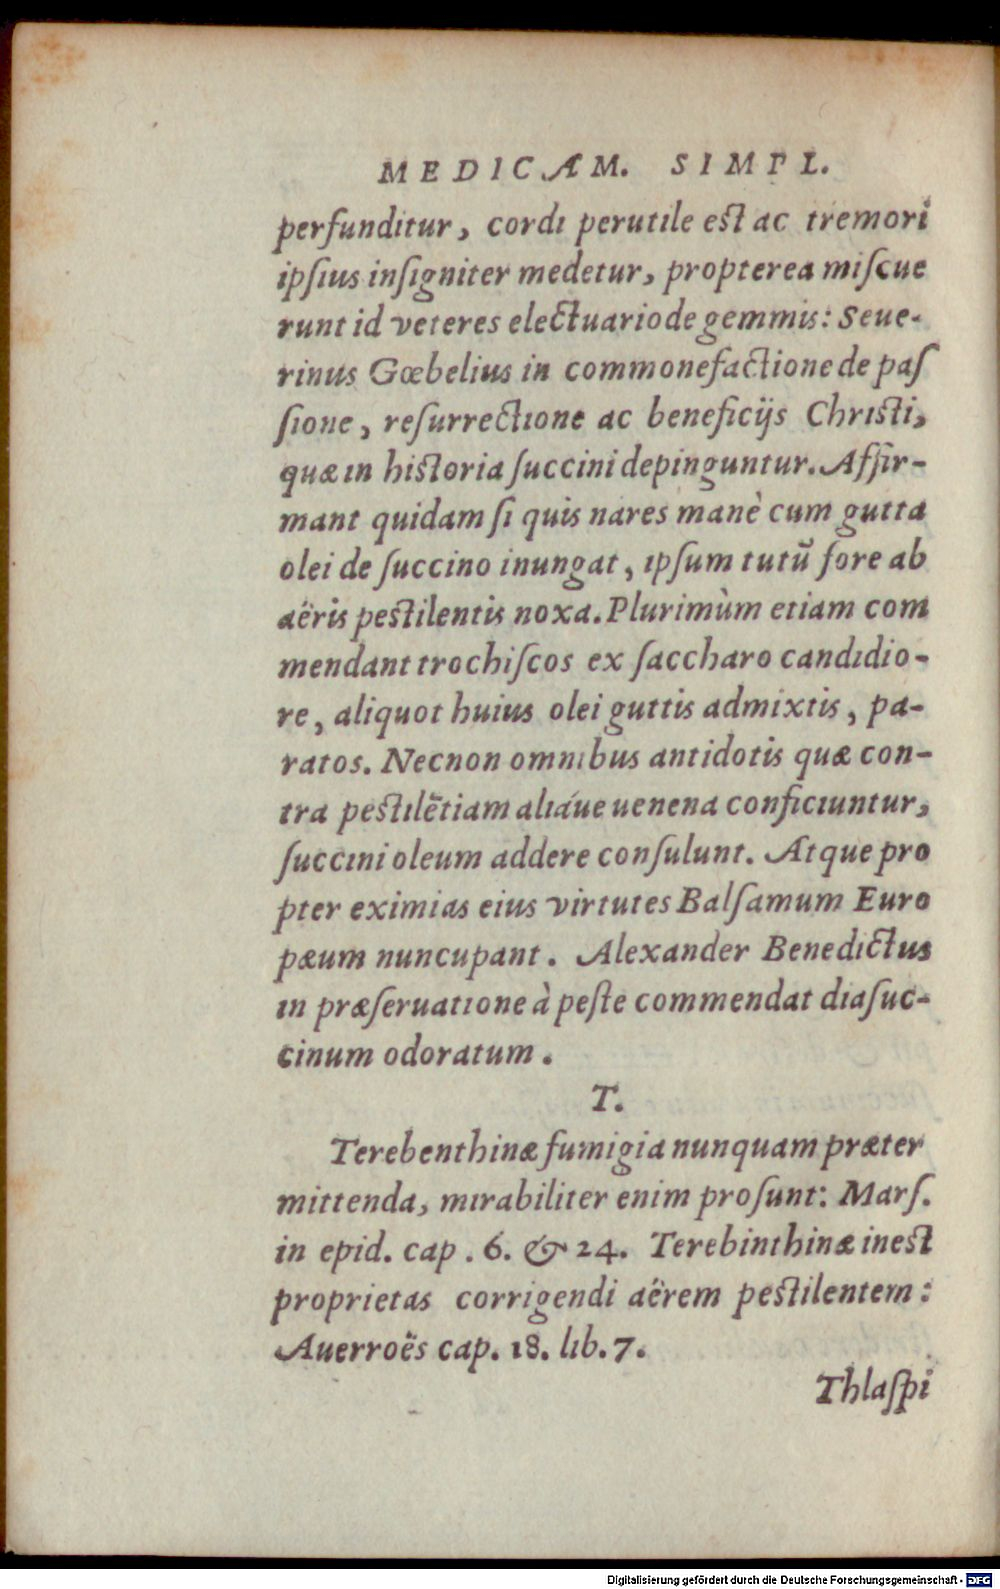 MEDICAM. SIMPL.
perfunditur, cordi perutile est ac tremori
ipſius inſigniter medetur, propterea miſcue
runt id veteres electuario de gemmis: Seue-
rinus Gœbelius in commonefactione de paſ
ſione, reſurrectione ac beneficijs Chriſti,
quæ in hiſtoria ſuccini depinguntur. Affir-
mant quidam ſi quis nares manè cum gutta
olei de ſuccino inungat, ipſum tutū fore ab
aëris peſtilentis noxa. Plurimùm etiam com
mendant trochiſcos ex ſaccharo candidio-
re, aliquot huius olei guttis admixtis, pa-
ratos. Necnon omnibus antidotis quæ con-
tra peſtilētiam aliáue uenena conficiuntur,
ſuccini oleum addere conſulunt. Atque pro
pter eximias eius virtutes Balſamum Euro
pæum nuncupant. Alexander Benedictus
in præſeruatione à peſte commendat diaſuc-
cinum odoratum.
T.
Terebenthinæ fumigia nunquam præter
mittenda, mirabiliter enim proſunt: Marſ.
in epid. cap. 6. & 24. Terebinthinæ ineſt
proprietas corrigendi aërem peſtilentem:
Auerroës cap. 18. lib. 7.
Thlaſpi
Digitalisierung gefördert durch die Deutsche Forschungsgemeinschaft - DFG